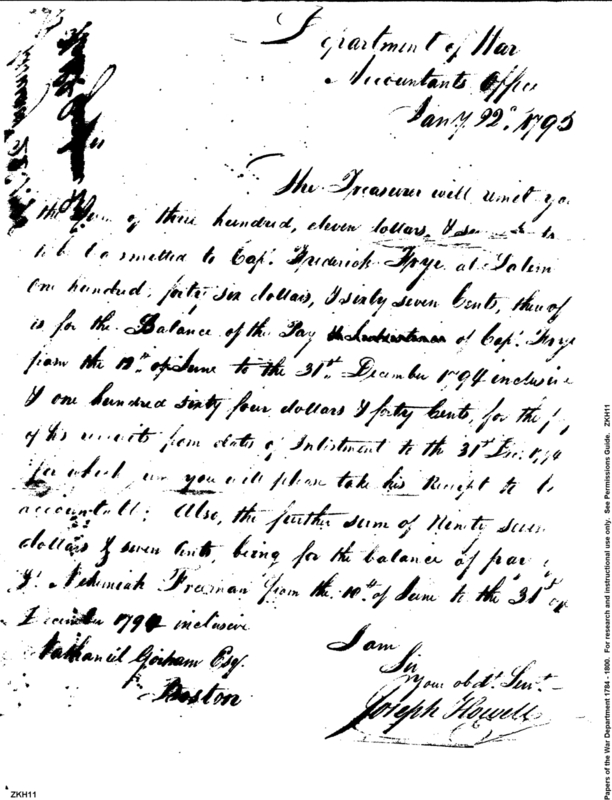 Department of War
Accountants Office
Jany 22d 1795
Sir
The Treasurer will remit you
the Sum of three hundred, eleven dollars, & seven Cents
to be transmitted to Capt. Frederick Frye at Salem
One hundred, forty six dollars, & sixty seven Cents, thereof
is for the Balance of the Pay of Capt. Frye
from the of June to the 31st December 1794 inclusive
& one hundred sixty four dollars & forty Cents, for the
of his recruits from dates of Inlistment to the 31st Dec. 1794
for which you will please take his Receipt to be
accountable; Also, the further sum of Ninety seven
dollars & seven Cents, being for the balance of pay
Lt. Nehemiah Freeman from the of June to the 31st of
December 1794 inclusive
I am
Sir
Your obdt. Servt.
Joseph Howell
Nathaniel Gorham Esqr.
Boston
ZKH11
Papers of the War Department 1784 - 1800. For research and instructional use only. See Permissions Guide. ZKH11